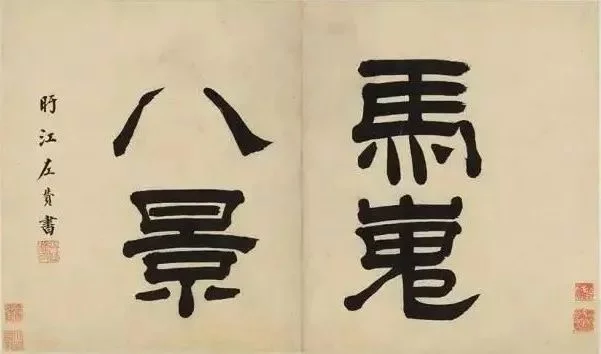 馬嵬
八景
盱江左贊書